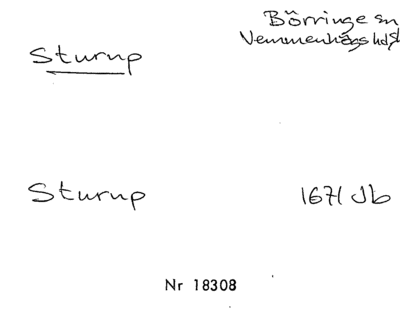 Börringe sn
Vemmenhögs hd
Sturup
Sturup 1671 Jb
Nr 18308